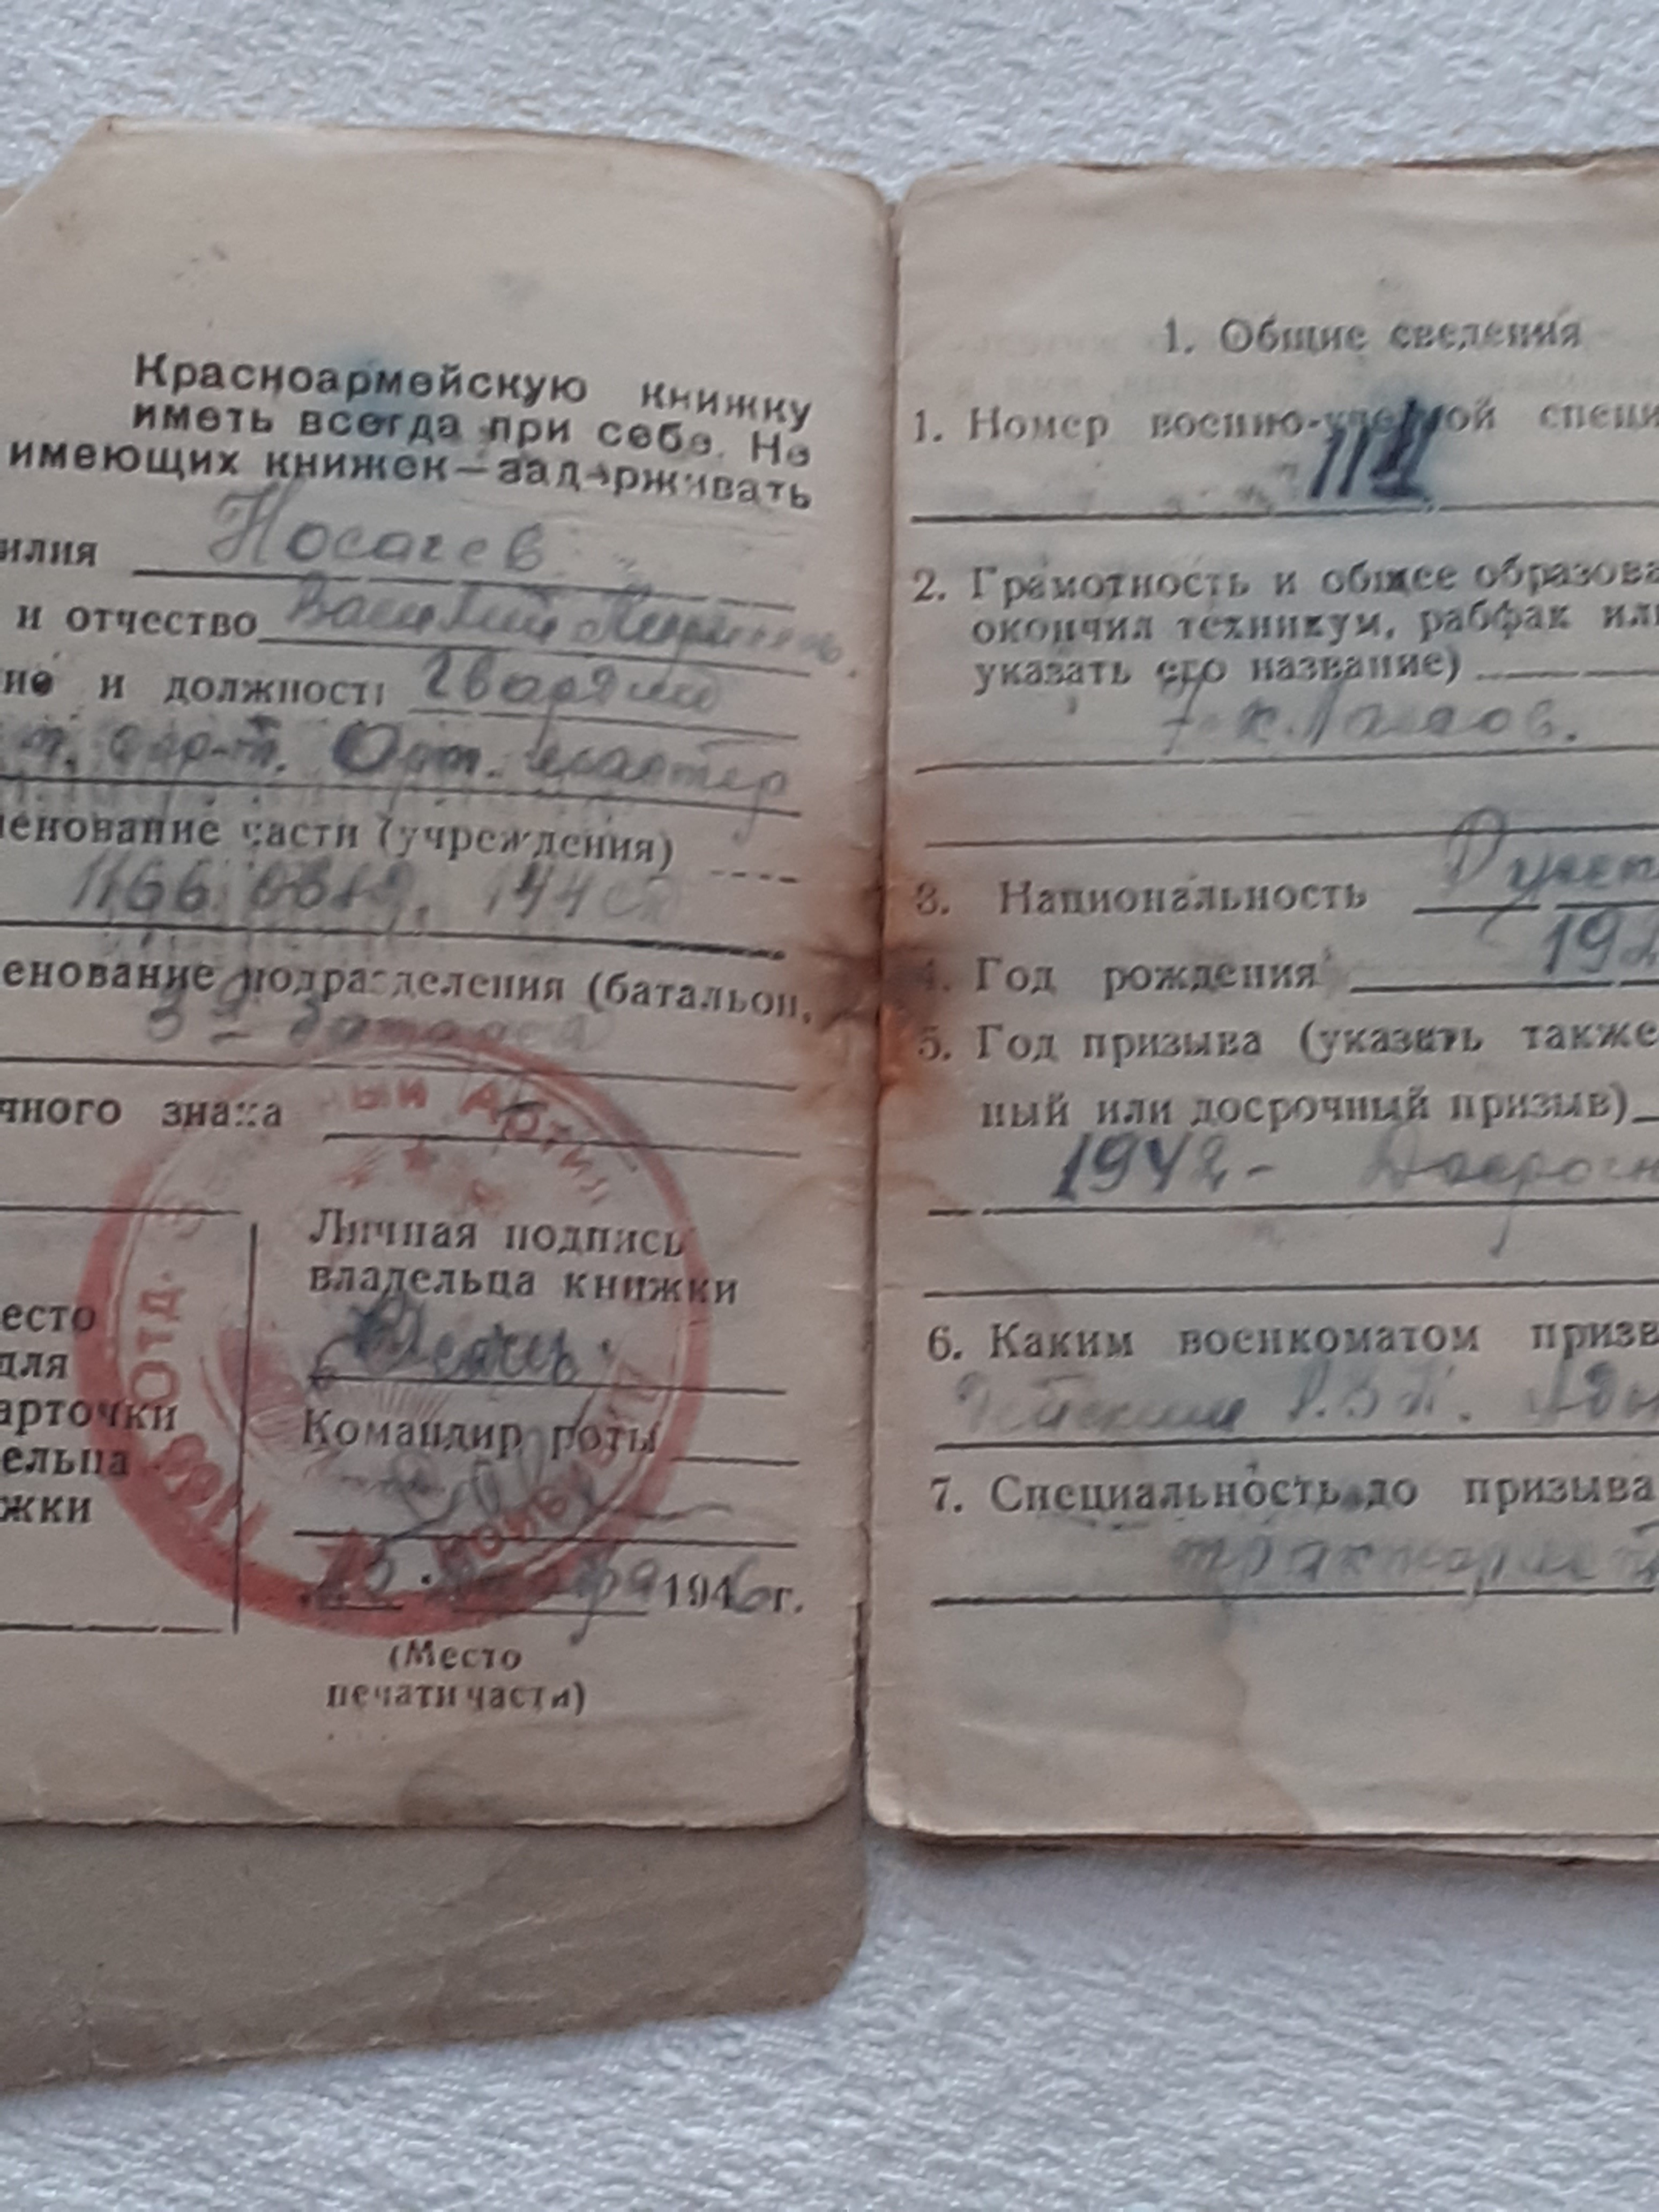 Красноармейскую книжку
иметь всегда при себе. Не
имеющих книжек—задерживать
илия Носачев
и отчество Василий
ие и должность Гвардии
Оруж. мастер
менование части (учреждения)
1166 144
енование подразделения (батальон,
3й
чного знака
Личная подпись
владельца книжки
есто
для
арточки
ельца
жки
Командир роты
1946г.
(Место
печати части)
Отд.
1166
1. Общие сведения
1. Номер военно-учетной специ
114
2. Грамотность и общее образова
окончил техникум, рабфак или
указать его название)
7 классов.
3. Национальность Русск
4. Год рождения 192
5. Год призыва (указать также
ный или досрочный призыв)
1942- Досрочн
6. Каким военкоматом призв
Р.В.К.
7. Специальность до призыва
тракторист